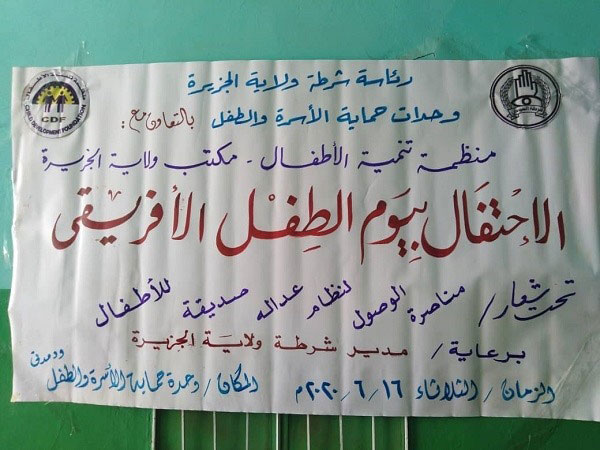 رئاسة شرطة ولاية الجزيرة
وحدات حماية الأسرة والطفل بالتعاون مع:
منظمة تنمية الأطفال - مكتب ولاية الجزيرة
الإحتفال بيوم الطفل الأفريقى
تحت شعار / مناصرة الوصول لنظام عداله صديقة للأطفال
برعاية / مدير شرطة ولاية الجزيرة
الزمان / الثلاثاء ١٦ / ٦ / ٢٠٢٠م المكان / وحدة حماية الأسرة والطفل ودمدنى
CDF
CHILD DEVELOPMENT FOUNDATION